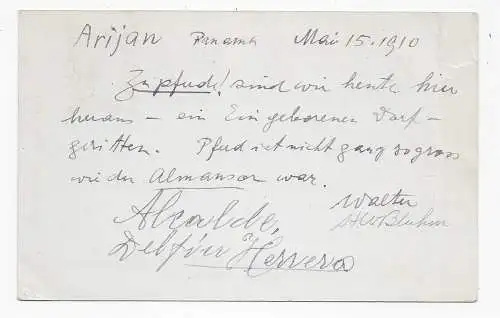 Arijan Panama Mai 15. 1910
Zu pfude! sind wir heute hier
heraus – ein Eingeborenen Dorf –
geritten. Pferd ist nicht ganz so gross
wie der Almansor war.
Walter
Alcalde,
Delfín Herrera